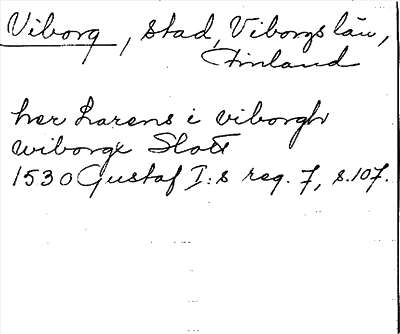 Viborg, stad, Viborgs län,
Finland
her Larens i viborgh
wiborgx Slott
1530 Gustaf I:s reg. 7, s.107.